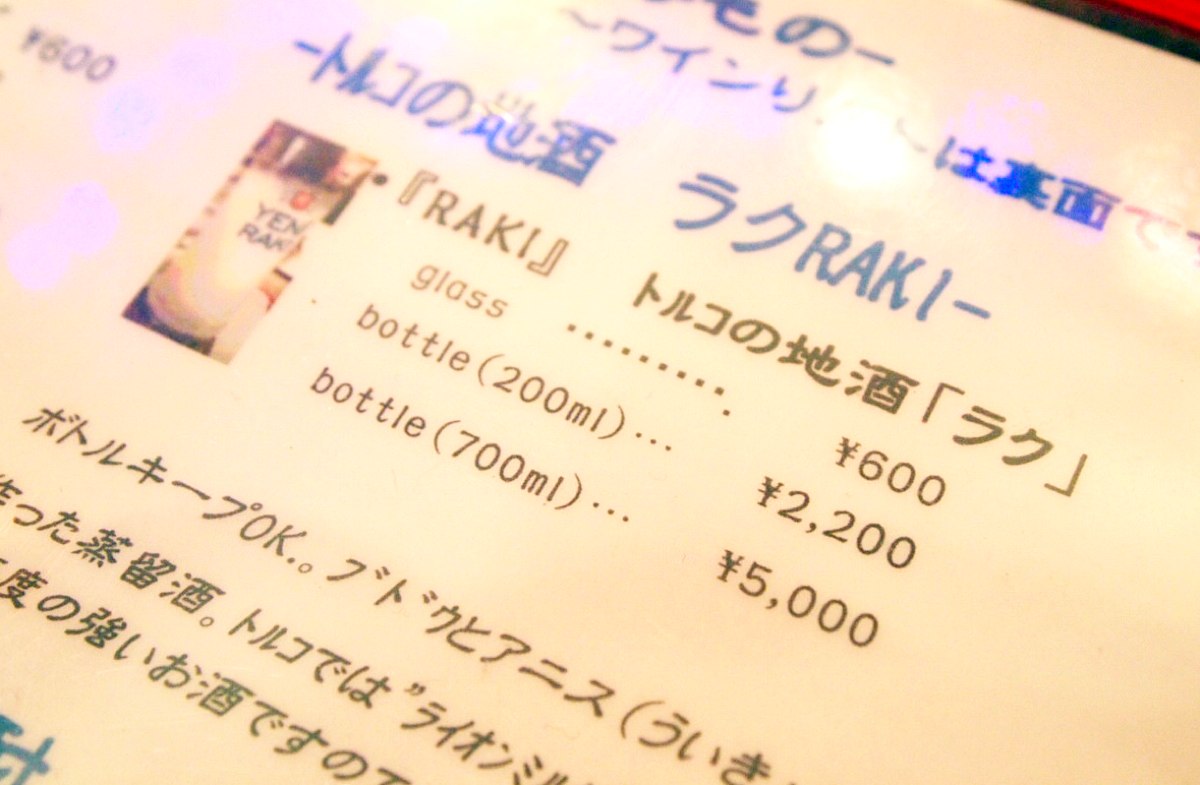 ¥600
ものー
～ワインリ
は裏面で
ートルコの地酒 ラクRAKIー
YENİ
RAKI
・『RAKI』 トルコの地酒「ラク」
glass ………. ¥600
bottle(200ml)… ¥2,200
bottle(700ml)… ¥5,000
ボトルキープOK.。ブドウとアニス(ういき
作った蒸留酒。トルコでは”ライオンミル
度の強いお酒ですので